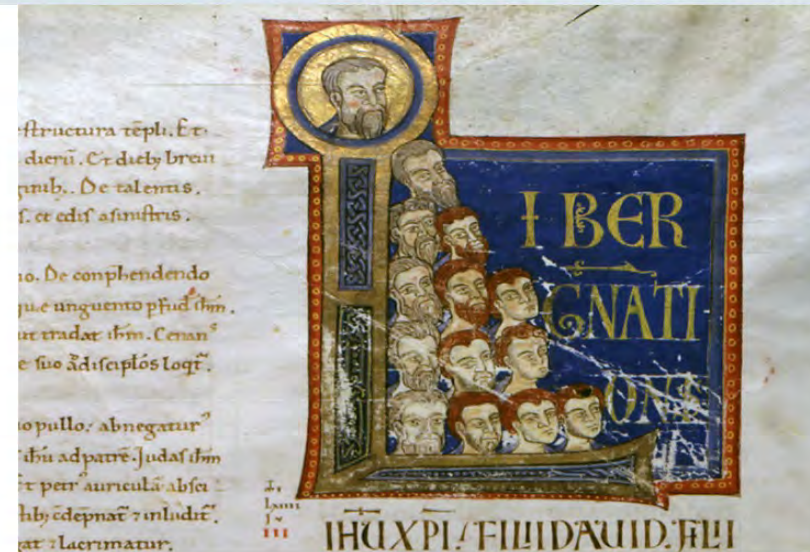 structura tēpli. Et
dierū. Et dictis breui
De talentis.
et edis asinistris.
De conphendendo
que unguento pfud ihm.
ut tradat ihm. Cenans
e suo adiscipłos loqt.
o pullo. abnegatur
ihū ad patrē. Judas ihm
petr auriculā absci
7 inludit.
at 7 lacrimatur.
L
IBER
GNATI
ONS
III
IHŪ XPI. FILII DAUID. FILI